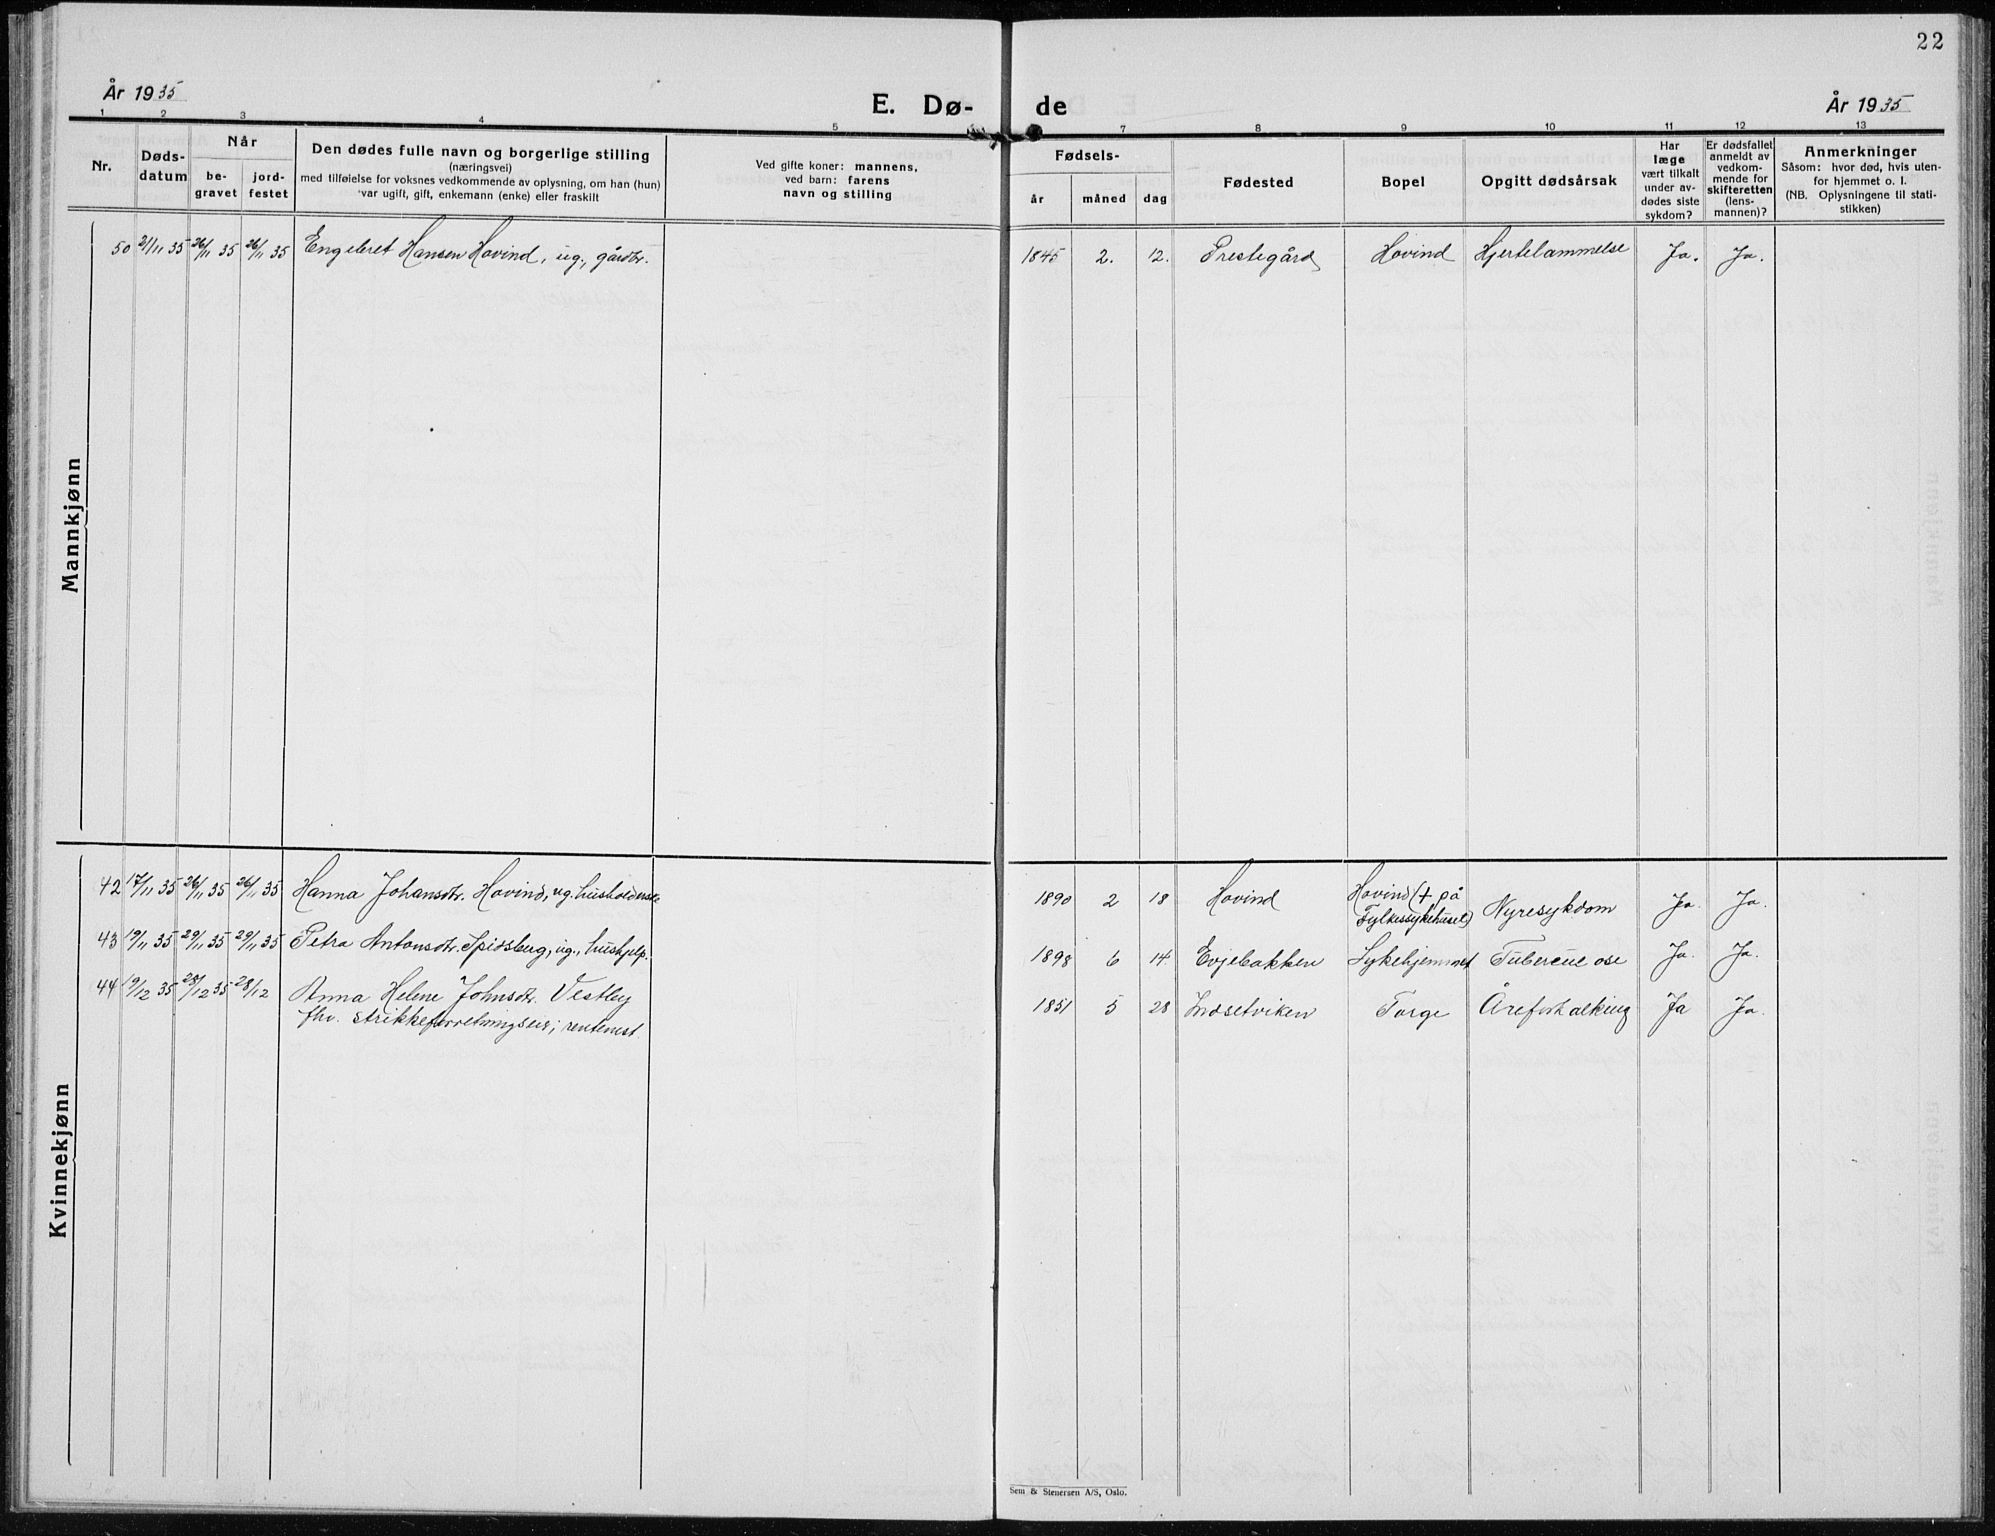 22
År 1935
E. Dø-
de
År 1935
1 2 3 4 5 7 8 9 10 11 12 13
Nr.
Døds-
datum
Når
be-
gravet
jord-
festet
Den dødes fulle navn og borgerlige stilling
(næringsvei)
med tilføielse for voksnes vedkommende av oplysning, om han (hun)
var ugift, gift, enkemann (enke) eller fraskilt
Ved gifte koner: mannens,
ved barn: farens
navn og stilling
Fødsels-
år
måned
dag
Fødested
Bopel
Opgitt dødsårsak
Har
læge
vært tilkalt
under av-
dødes siste
sykdom?
Er dødsfallet
anmeldt av
vedkom-
mende for
skifteretten
(lens-
mannen)?
Anmerkninger
Såsom: hvor død, hvis uten-
for hjemmet o. l.
(NB. Oplysningene til stati-
stikken)
Mannkjønn
50 21/11 35 26/11 35 26/11 35 Engebret Hansen Hovind, ug., gårdbr. 1845 2. 12. Prestegård Hovind Hjertelammelse Ja. Ja.
Kvinnekjønn
42 17/11 35 26/11 35 26/11 35 Hanna Johansdtr. Hovind, ug. husholderske 1890 2 18 Hovind Hovind († på
Fylkessykehuset) Nyresykdom Ja. Ja.
43 19/11 35 29/11 35 29/11 35 Petra Antonsdtr. Spidsberg, ug., hushjelp. 1898 6 14. Evjebakken Sykehjemmet Tuberculose Ja. Ja.
44 19/12 35 28/12 35 28/12 Anna Helene Johnsdtr. Vestby
fhv. strikkeforretningseier; rentenist. 1851 5 28 Indsetviken Torge Åreforkalkning Ja Ja.
Sem & Stenersen A/S, Oslo.